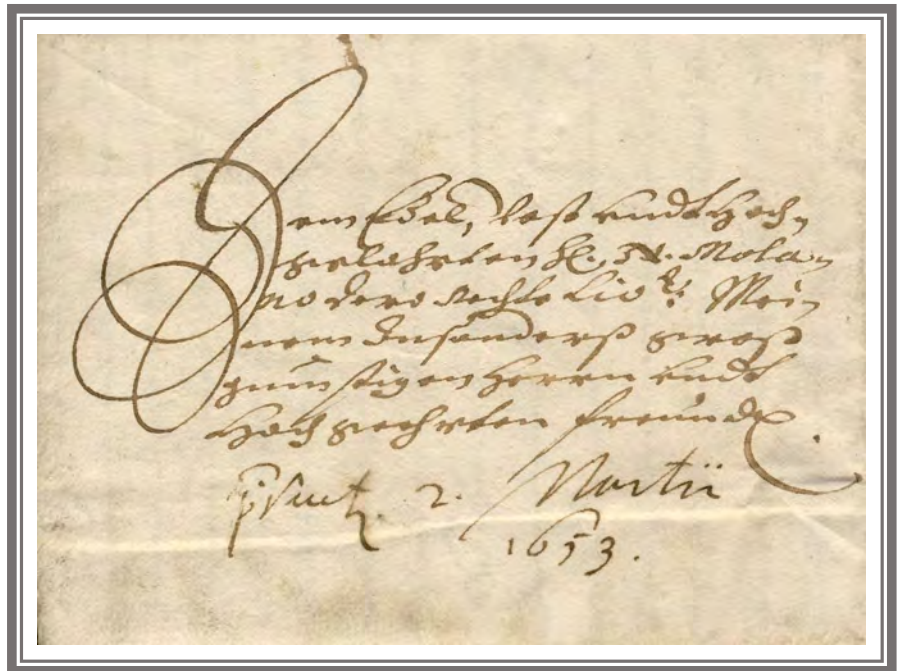 Dem Edel, Vest undt Hoch-
gelahrten H. N. Mola-
no dero Rechte Licto. Mei-
nem Insonderß groß
gunstigen Herrn undt
Hochgeehrten freundt.
2. Martii
1653.